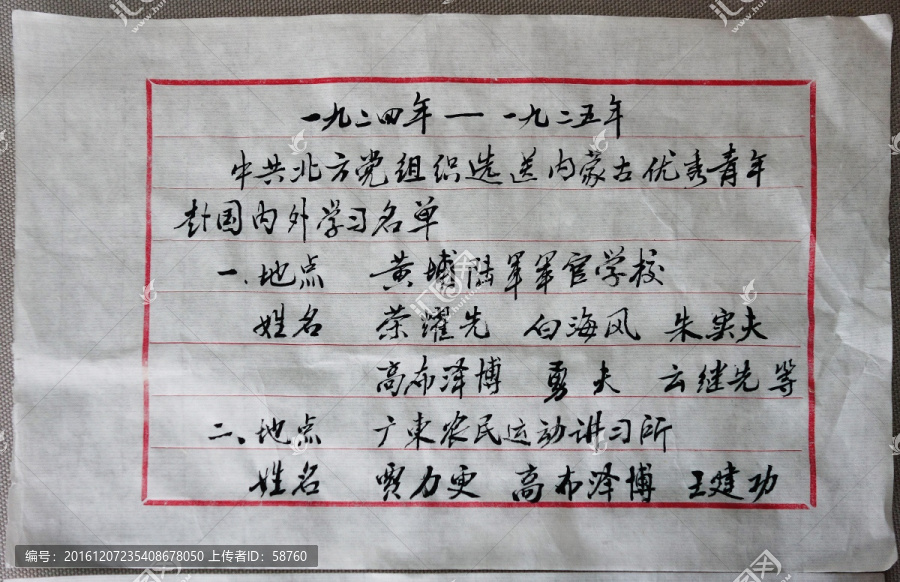 一九二四年——一九二五年
中共北方党组织选送内蒙古优秀青年
赴国内外学习名单
一、地点 黄埔陆军军官学校
姓名 荣耀先 白海风 朱实夫
高布泽博 勇夫 云继先等
二、地点 广东农民运动讲习所
姓名 贾力更 高布泽博 王建功
编号：20161207235408678050 上传者ID：58760